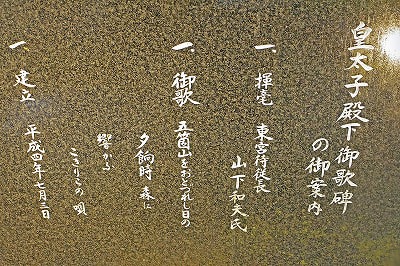 皇太子殿下御歌碑
の御案内
一、揮毫 東宮侍従長
山下和夫氏
一、御歌 五箇山をおとづれし日の
夕餉時 森に
響かふ
こきりこの唄
一、建立 平成四年七月三日